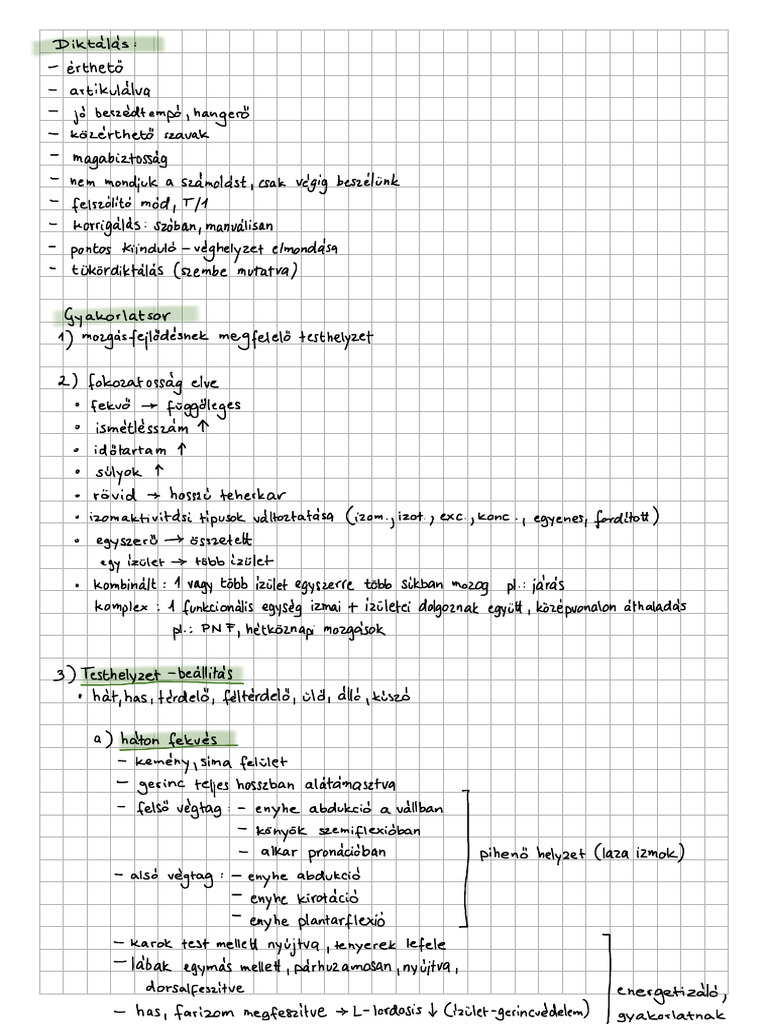 Diktálás:
- érthető
- artikulálva
- jó beszédtempó, hangerő
- közérthető szavak
- magabiztosság
- nem mondjuk a számolást, csak végig beszélünk
- felszólító mód, T/1
- korrigálás: szóban, manuálisan
- pontos kiinduló - véghelyzet elmondása
- tükördiktálás (szembe mutatva)
Gyakorlatsor
1) mozgásfejlődésnek megfelelő testhelyzet
2) fokozatosság elve
• fekvő → függőleges
• ismétlésszám ↑
• időtartam ↑
• súlyok ↑
• rövid → hosszú teherkar
• izomaktivitási típusok változtatása (izom., izot., exc., konc., egyenes, fordított)
• egyszerű → összetett
egy ízület → több ízület
• kombinált: 1 vagy több ízület egyszerre több síkban mozog pl.: járás
komplex: 1 funkcionális egység izmai + ízületei dolgoznak együtt, középvonalon áthaladás
pl.: PNF, hétköznapi mozgások
3) Testhelyzet - beállítás
• hát, has, térdelő, féltérdelő, ülő, álló, kúszó
a) háton fekvés
- kemény, sima felület
- gerinc teljes hosszban alátámasztva
- felső végtag: - enyhe abdukció a vállban
- könyök szemiflexióban
- alkar pronációban
pihenő helyzet (laza izmok)
- alsó végtag: - enyhe abdukció
- enyhe kirotáció
- enyhe plantarflexió
- karok test mellett nyújtva, tenyerek lefele
- lábak egymás mellett, párhuzamosan, nyújtva,
dorsalfeszítve
- has, farizom megfeszítve → L-lordosis ↓ (ízület-gerincvédelem)
energetizáló,
gyakorlatnak